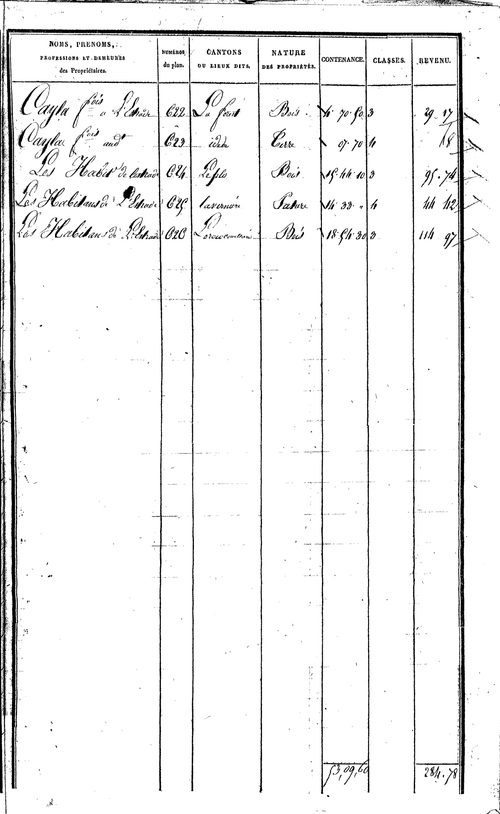 NOMS, PRENOMS, PROFESSIONS ET DEMEURES des Propriétaires. NUMÉROS du plan. CANTONS OU LIEUX DITS. NATURE DES PROPRIÉTÉS. CONTENANCE. CLASSES. REVENU.
Cayla f.cois a L'Estrade 622 La foret Bois 4 70 50 3 29 17
Cayla f.cois 623 idem Terre 07 70 4 18
Les Habit.s de 624 Bois 15 44 10 3 95 74
Les Habitans de L'Estrade 625 Pature 14 33 " 4 44 42
Les Habitans de L'Estrade 626 Bois 18 54 30 3 114 97
53,09,60 284.78